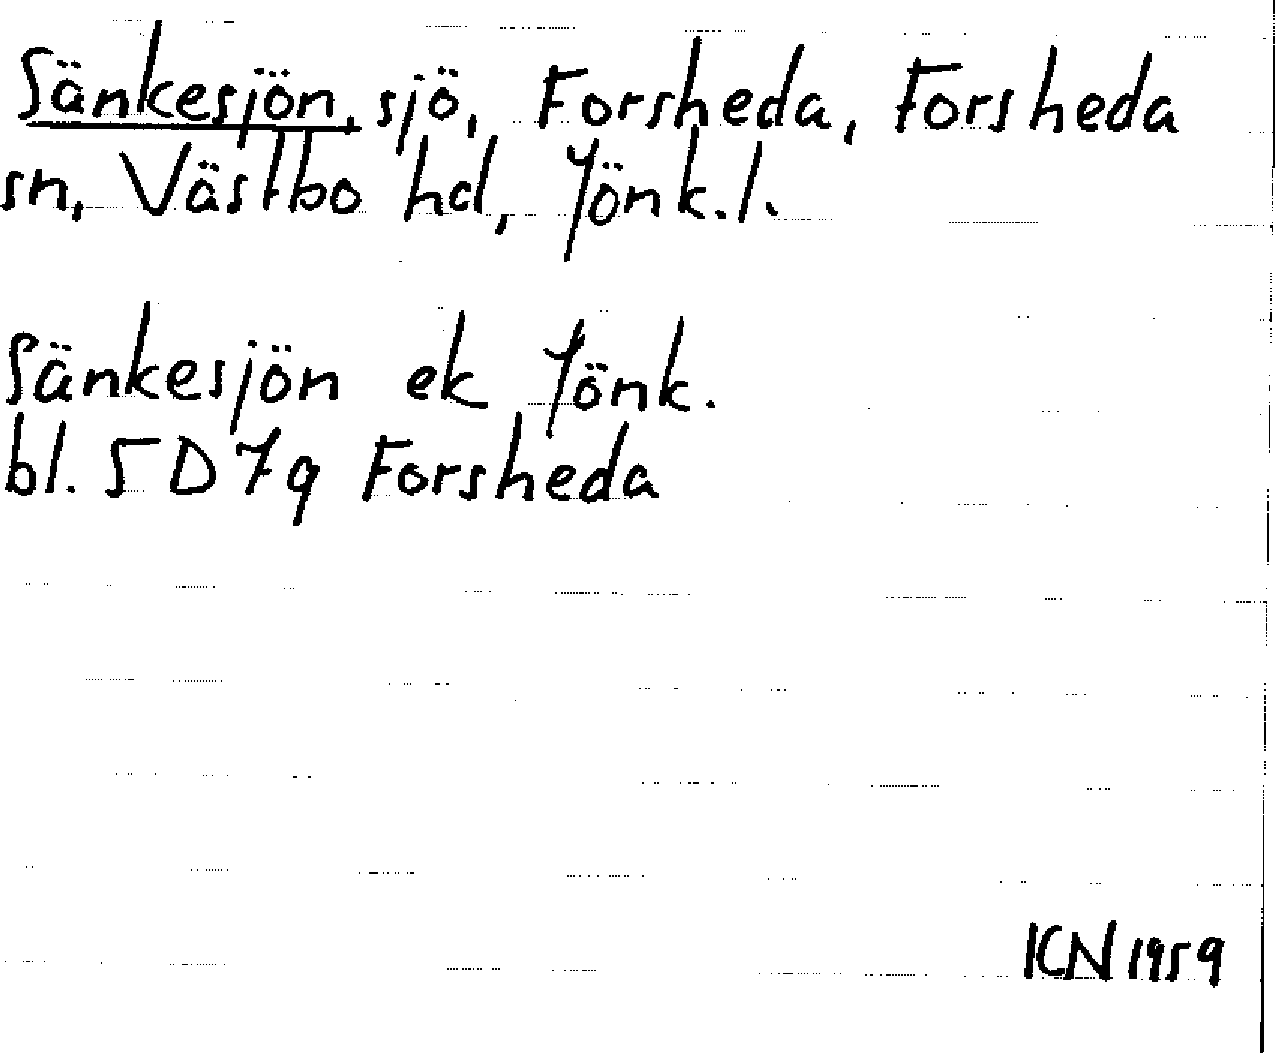 Sänkesjön, sjö, Forsheda, Forsheda
sn, Västbo hd, Jönk.l.
Sänkesjön ek Jönk.
bl. 5D7g Forsheda
ICN 1959